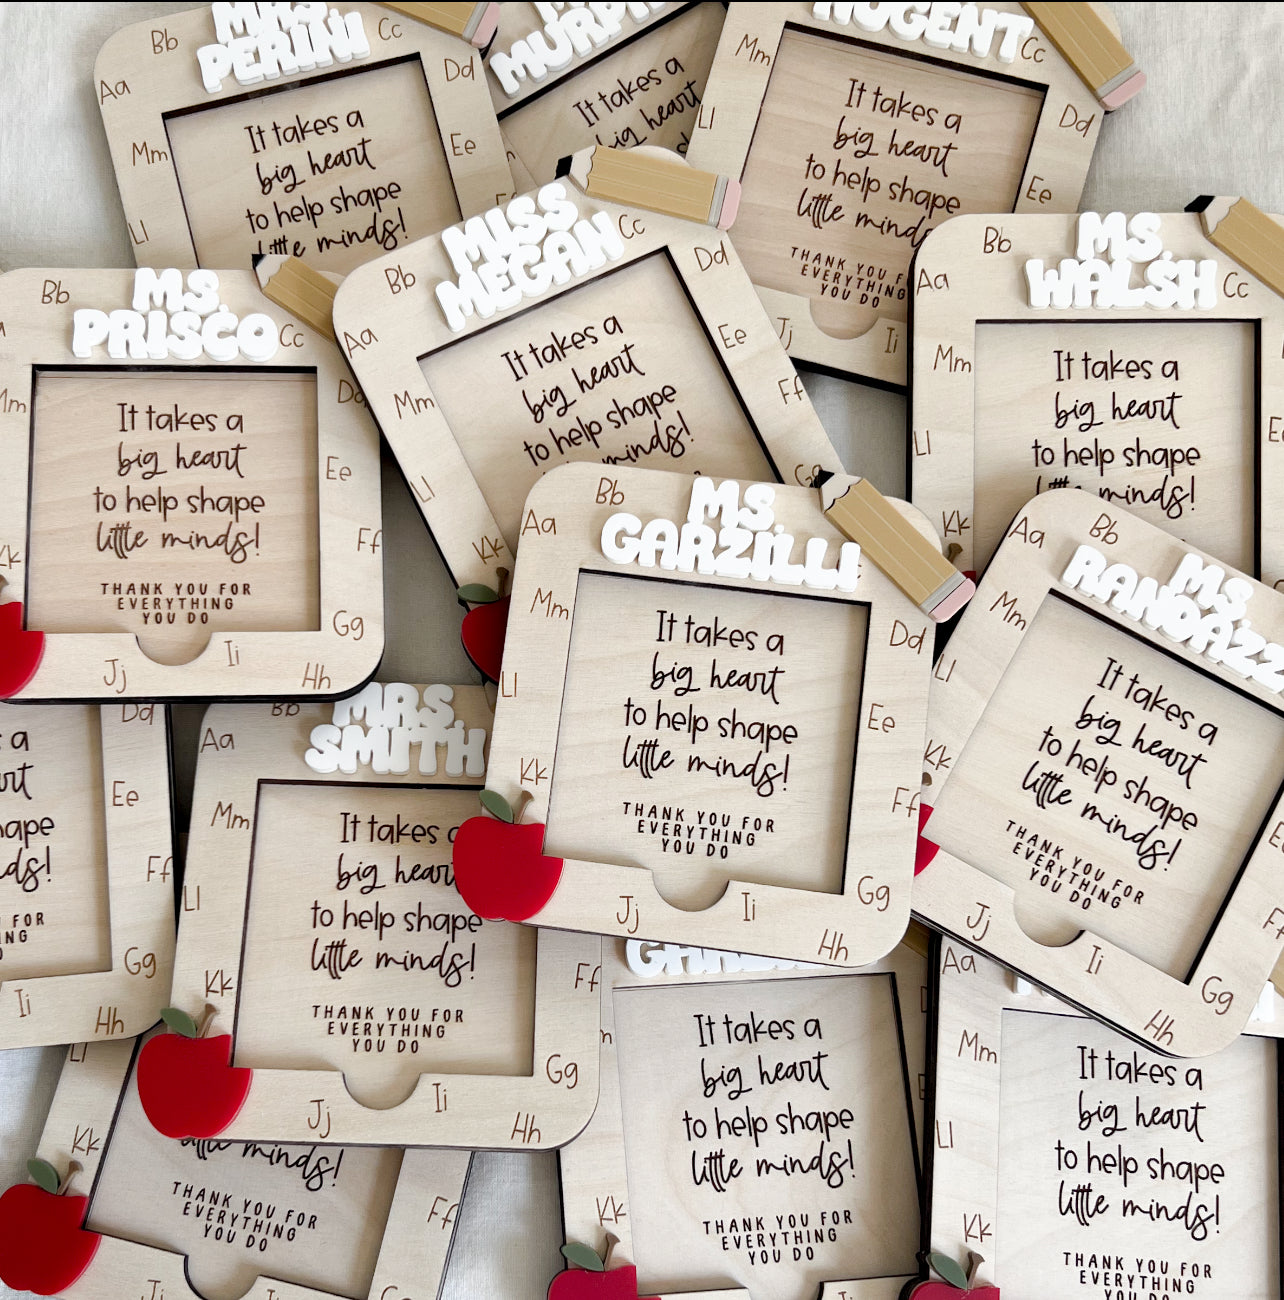 MRS.
PERINI
Aa
Bb
Cc
Dd
Ee
Mm
Ll
It takes a
big heart
to help shape
little minds!
It takes a
big heart
NUGENT
Cc
Dd
Ee
Mm
Ll
Jj
Ii
It takes a
big heart
to help shape
little minds
THANK YOU
EVERYTHING
YOU DO
MS.
PRISCO
Bb
Cc
Dd
Ee
Ff
Gg
Hh
Ii
Jj
Kk
Mm
It takes a
big heart
to help shape
little minds!
THANK YOU FOR
EVERYTHING
YOU DO
MISS
MEGAN
Aa
Bb
Cc
Dd
Ee
Ff
Gg
Kk
Ll
Mm
It takes a
big heart
to help shape
minds!
MS.
WALSH
Aa
Bb
Cc
Mm
Ll
Kk
It takes a
big heart
to help shape
little minds!
MS.
GARZILLI
Aa
Bb
Dd
Ee
Ff
Gg
Hh
Ii
Jj
Kk
Ll
Mm
It takes a
big heart
to help shape
little minds!
THANK YOU FOR
EVERYTHING
YOU DO
MS.
RANDAZZ
Aa
Bb
Mm
Ll
Kk
Jj
Ii
Hh
Gg
Ff
It takes a
big heart
to help shape
little minds!
THANK YOU FOR
EVERYTHING
YOU DO
Dd
Ee
Ff
Gg
Hh
Ii
a
ape
FOR
MRS.
SMITH
Aa
Bb
Mm
Ll
Kk
Jj
Ii
Hh
Gg
Ff
It takes a
big heart
to help shape
little minds!
THANK YOU FOR
EVERYTHING
YOU DO
Ll
Kk
Ff
little minds!
THANK YOU FOR
EVERYTHING
YOU DO
Kk
It takes a
big heart
to help shape
little minds!
THANK YOU FOR
EVERYTHING
YOU DO
Aa
Mm
Ll
Kk
It takes a
big heart
to help shape
little minds!
THANK YOU FOR
EVERYTHING